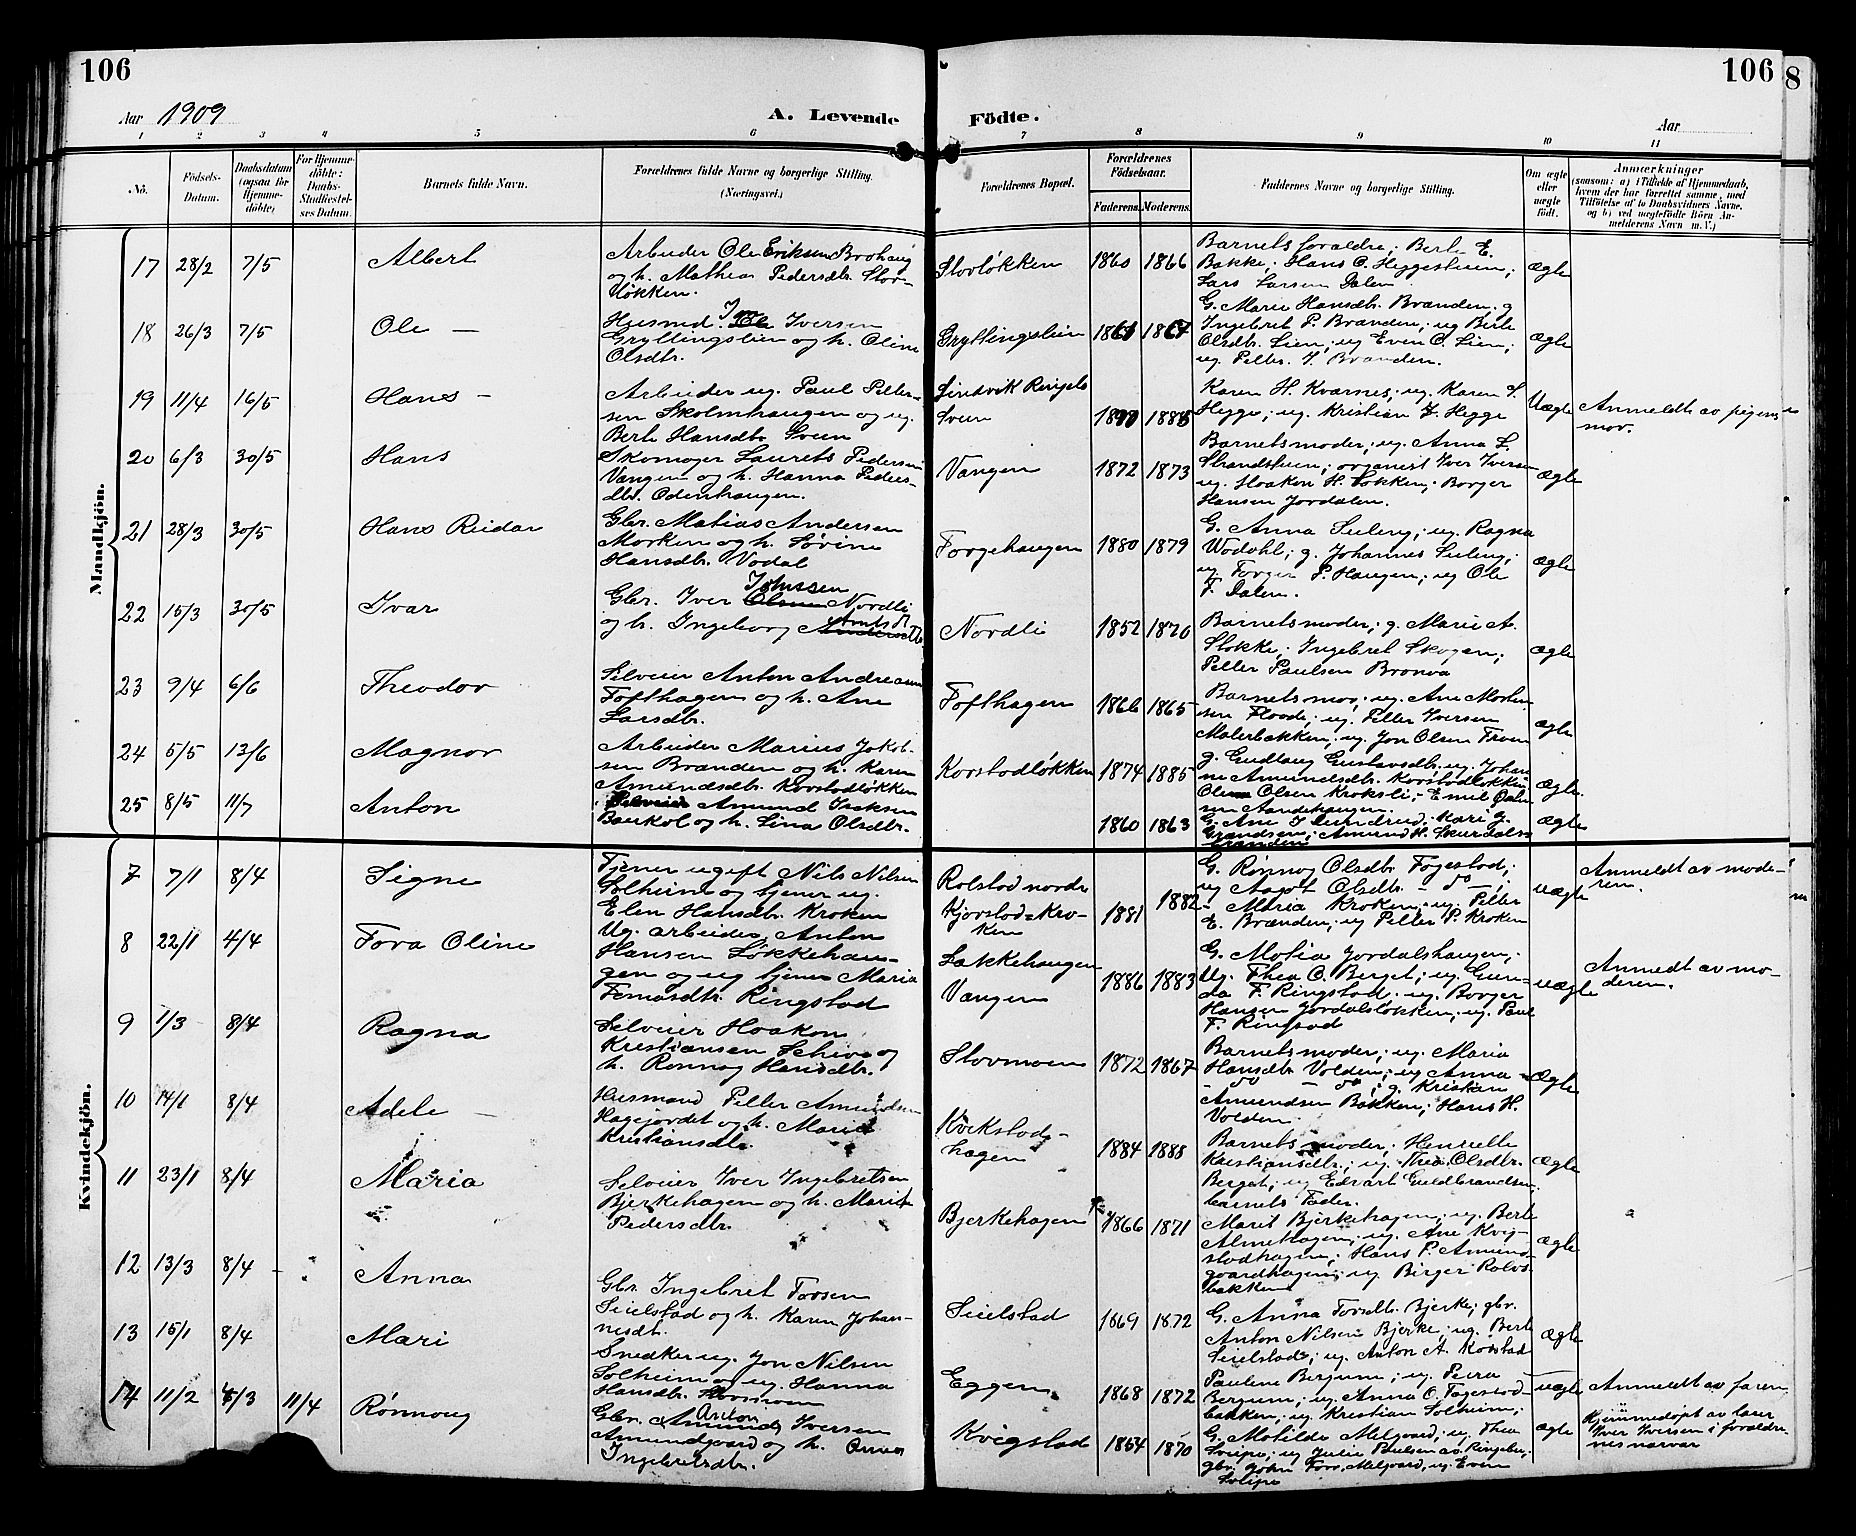 106
106
8
Aar 1909
A. Levende
Födte.
Aar
1 2 3 4 5 6 7 8 9 10 11
No.
Födsels-Datum.
Daabsdatum (ogsaa for Hjemme-döbte)
For Hjemme-döbte: Daabs-Stadfæstel-ses Datum.
Barnets fulde Navn.
Forældrenes fulde Navne og borgerlige Stilling. (Næringsvei.)
Forældrenes Bopæl.
Forældrenes Födselsaar.
Faderens. Moderens.
Faddernes Navne og borgerlige Stilling.
Om ægte eller uægte födt.
Anmærkninger
(saasom: a) i Tilfælde af Hjemmedaab, hvem der har forrettet samme, med Tilföielse af to Daabsvidners Navne, og b) ved uægtefödte Börn Anmelderens Navn m.V.)
Mandkjön.
17 28/2 7/5 Albert
Arbeider Ole Eriksen Brohaug
og h. Mathea Pedersdtr. Stor-
løkken.
Storløkken 1860 1866
Barnets forældre; Berte E.
Bakke; Hans O. Heggesteien;
Lars Larsen Dalen
ægte
18 26/3 7/5 Ole —
Husmd. Iver Iversen
Gryttingslien og h. Oline
Olsdtr.
Gryttingslien 1861 1867
G. Marie Hansdtr. Brænden; g
Ingebret P. Brænden; ug Berte
Olsdtr. Lien; ug Even O. Lien;
ug. Petter I. Brænden.
ægte
19 11/4 16/5 Hans —
Arbeider ug. Paul Petter-
sen Skolmhaugen og ug.
Berte Hansdtr. Sveen
Sindvik Ringebo
Sveen 1890 1885
Karen H. Kvarnes; ug. Karen I.
Hegge; ug. Kristian I. Hegge
Uægte
Anmeldt av pigens
mor.
20 6/3 30/5 Hans
Skomager Laurets Pedersen
Vangen og h. Hanna Peders-
dtr. Odenhaugen.
Vangen 1872 1873
Barnets moder; ug. Anna L.
Strandsteien; organist Iver Iversen
ug. Haakon H. Løkken; Borger
Hansen Jordalen.
ægte
21 28/3 30/5 Hans Reidar
Gbr. Matias Andersen
Morken og h. Sørine
Hansdtr. Vodal
Forgehaugen 1880 1879
G. Anna Lieling; ug Ragna
Wodahl; g. Johannes Lieling;
ug Torger P. Haugen; ug Ole
F. Dalen.
ægte
22 15/3 30/5 Ivar
Johnssen
Gbr. Iver Olsen Nordli
og h. Ingeborg
Nordli 1852 1870
Barnets moder; g. Marie A.
Stokke; Ingebret Skogen;
Petter Paulsen Bronva
ægte
23 9/4 6/6 Theodor
Selveier Anton Andreasen
Tofthagen og h. Ane
Larsdtr.
Tofthagen 1866 1865
Barnets mor; ug. Ane Morten
sen Floode; ug. Petter Iversen
Malerbakken; ug. Jon Olsen Troen
ægte
24 5/5 13/6 Magnor
Arbeider Marius Jakob-
sen Brænden og h. Karen
Amundsdtr. Korstadløkken
Korstadløkken 1874 1885
g. Gudlaug Gustavsdtr. ug. Johan
ne Amundsdtr. Korstadløkken
Olsen Kroksli; Emil
sen Aandehaugen.
ægte.
25 8/5 11/7 Anton
Selveier Amund Isaksen
Bækkol og h. Lina Olsdtr.
1860 1863
G. Ane I. Lundrud; Kari J.
Grandsen; Amund H. Skurdalsen
ægte
Kvindekjön.
7 7/1 8/4 Signe
Tjener ugift Nils Nilsen
Solheim og tjener ug.
Elen Hansdtr. Kroken
Rolstad nordr
Kjorstad - Kro-
ken 1881 1882
G. Rønnog Olsdtr. Fogestad;
ug Aagot Olsdtr. — do —;
Maria Kroken; ug. Petter
E. Brænden; ug Petter P. Kroken
uægte
Anmeldt av mode-
ren.
8 22/1 4/4 Tora Oline
Ug. arbeider Anton
Hansen Løkkehau-
gen og ug tjener Maria
Ringstad
Løkkehaugen
Vangen 1886 1883
G. Matia Jordalshaugen;
Ug. Thea O. Berget; ug Gun-
da F. Ringstad; ug. Borger
Hansen Jordalsløkken; ug. Paul
F. Ringstad
uægte
Anmedt av mo-
deren.
9 1/3 8/4 Ragna
Selveier Haakon
Kristiansen Schive og
h. Rønnog Hansdtr.
Stormoen 1872 1867
Barnets moder; ug. Maria
Hansdtr. Volden; ug Anna
— do — do; g. Kristian
Amundsen Bakken; Hans H.
Volden
Ægte
10 14/1 8/4 Adele —
Husmand Petter Amundsen
Hagejordet og h. Marie
Kristiansdtr.
Kvikstads-
hagen 1884 1888
Barnets moder; Henriette
Kristiansdtr.; ug. Thea Olsdtr.
Berget; ug Edvart Guldbrandsen
barnets Fader.
ægte
11 23/1 8/4 Maria
Selveier Iver Ingebretsen
Bjerkehagen og h. Marit
Pedersdtr.
Bjerkehagen 1866 1871
Marit Bjerkehagen; ug. Berte
Almehagen; ug. Ane Kvig-
stadhagen; Hans P. Amund-
gaardhagen; ug Birger Rolvs-
bakken
ægte
12 13/3 8/4 Anna
Gbr. Ingebret Torsen
Seielstad og h. Karen Johan-
nesdtr.
Seielstad 1869 1872
G. Anna Torsdtr. Bjerke; gbr.
Anton Nilsen Bjerke; ug. Berte
Seielstad; ug. Anton A. Korstad
ægte
13 15/1 8/4 Mari
Snedker ug. Jon Nilsen
Solheim og ug. Hanna
Hansdtr. Stormoen
Eggen 1868 1872
Pauline Bergum; ug. Petra
Bergum; ug Anna O. Fogestad-
bakken; ug. Kristian Solheim;
uægte
Anmeldt av faren
14 11/2 4/3 11/4 Rønnoug
Anton
Gbr. Amund Iversen
Amundgaard og h. Anna
Ingebretsdtr.
Kvigstad 1854 1870
G. Matilde Melgaard; ug. Thea
Svipe; ug Julie Paulsen av Ringebu;
gbr. John Tors. Melgaard, ug. Even
Solipe
ægte
Hjemmedøpt av lærer
Iver Iversen i forældre
nes nærvær